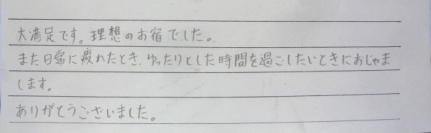 大満足です。理想のお宿でした。
また日常に疲れたとき、ゆったりとした時間を過ごしたいときにおじゃま
します。
ありがとうございました。